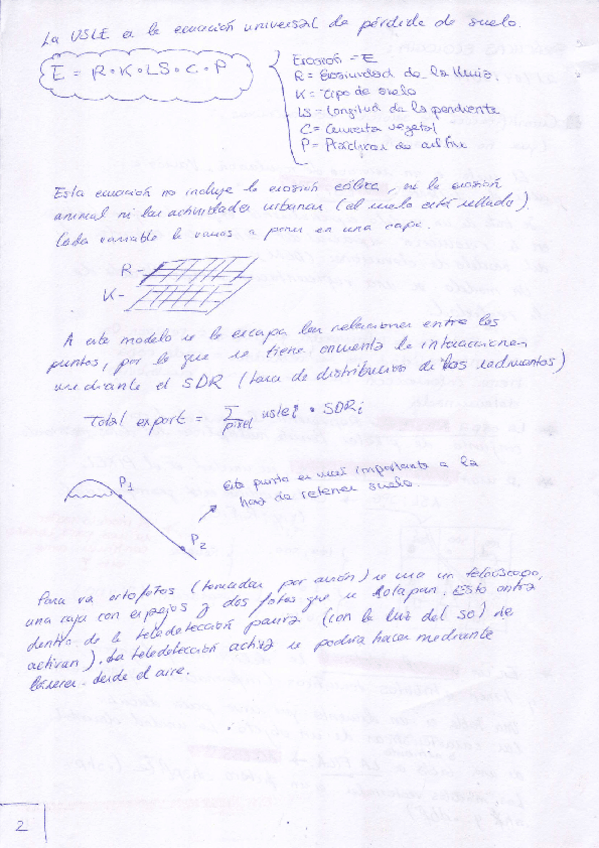 La USLE es la ecuación universal de pérdida de suelo.
E = R·K·LS·C·P
Erosión = E
R = Erosividad de la lluvia.
K = Tipo de suelo
LS = Longitud de la pendiente
C = Cubierta vegetal
P = Prácticas de cultivo
Esta ecuación no incluye la erosión eólica, ni la erosión
animal ni las actividades urbanas (el suelo está sellado).
Cada variable la vamos a poner en una capa.
R -
K -
A este modelo se le escapa las relaciones entre los
puntos, por lo que se tiene en cuenta la interacción
mediante el SDR (tasa de distribución de los sedimentos)
Total export = Σ pixel usle i · SDR i
P1
Este punto es más importante a la
hora de retener suelo.
P2
Para ver ortofotos (tomadas por avión) se usa un
una caja con espejos y dos fotos que se solapan. Esto entra
dentro de la teledetección pasiva (con la luz del sol se
activan). La teledetección activa se podría hacer mediante
láseres desde el aire.
2